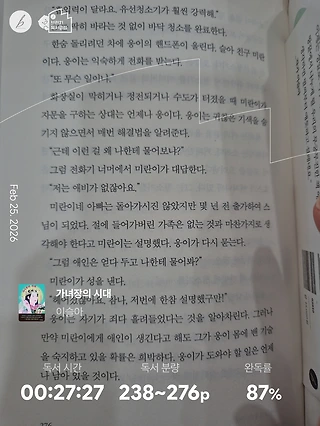 력이 달라요. 유선청소기가 훨씬 강력해."
박히 바라는 것 없이 바닥 청소를 완료한다.
한숨 돌리려던 차에 웅이의 핸드폰이 울린다. 슬아 친구 미란
이다. 웅이는 익숙하게 전화를 받는다.
"또 무슨 일이냐."
화장실이 막히거나 정전되거나 수도가 터졌을 때 미란이가
자문을 구하는 상대는 언제나 웅이다. 웅이는 귀찮은 기색을 숨
기지 않으면서 매번 해결법을 알려준다.
"근데 이런 걸 왜 나한테 물어보냐?"
그럼 전화기 너머에서 미란이가 대답한다.
"저는 애비가 없잖아요."
미란이네 아빠는 돌아가시진 않았지만 몇 년 전 출가하여 스
님이 되었다. 절에 들어가버린 가족은 없는 것과 마찬가지로 생
각해야 한다고 미란이는 설명했다. 웅이가 다시 묻는다.
"그럼 애인은 얻다 두고 나한테 물어봐?"
미란이가 성을 낸다.
저번에 한참 설명했구만!"
웅이는 자기가 죄다 흘려들었다는 것을 알아차린다. 그러나
만약 미란이에게 애인이 생긴다고 해도 그가 웅이 몸에 밴 기술
을 숙지하고 있을 확률은 희박하다. 웅이가 도와야 할 일은 언제
나 남아 있을 것이다.
276
Feb 25. 2026
가녀장의 시대
이슬아
독서 시간
독서 분량
완독률
00:27:27
238~276p
87%